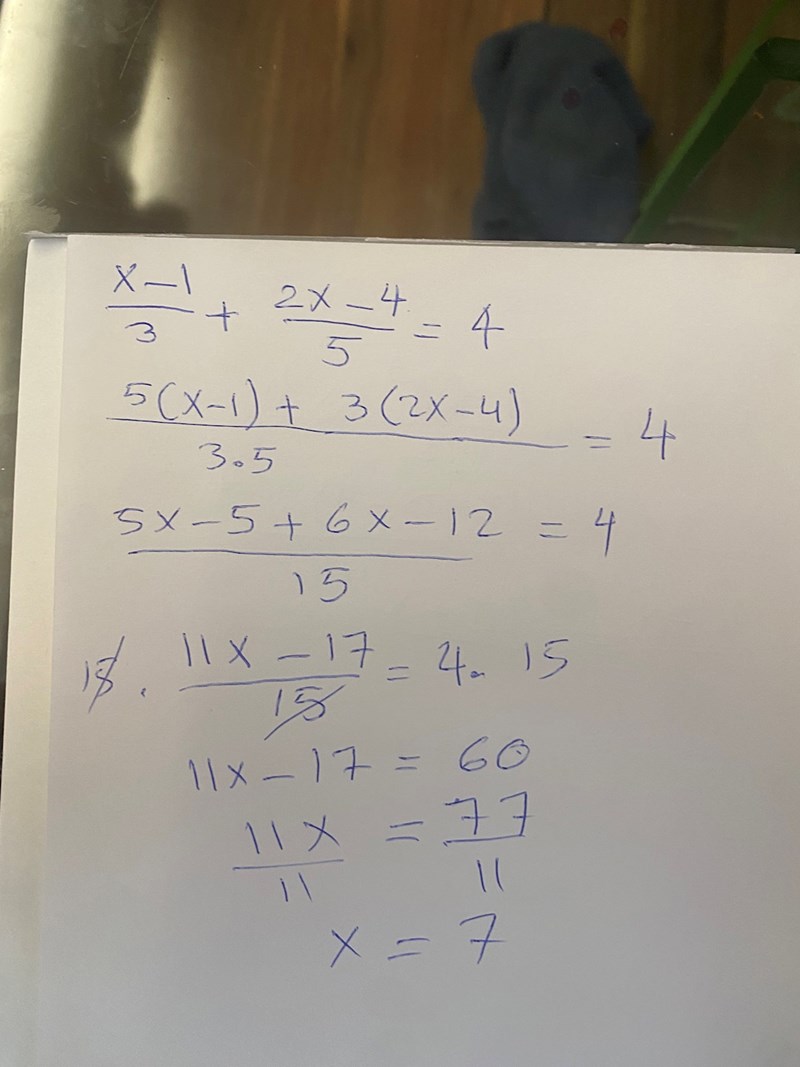 x-1/3 + 2x-4/5 = 4
5(x-1) + 3(2x-4)/3.5 = 4
5x-5+6x-12/15 = 4
15 . 11x-17/15 = 4. 15
11x-17 = 60
11x/11 = 77/11
x = 7